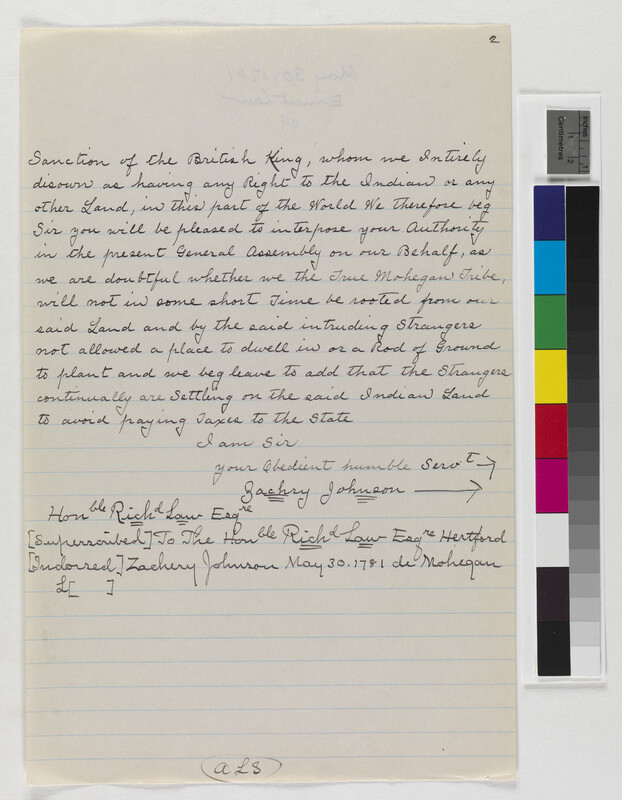 2
Sanction of the British King, whom we Intirely
disown as having any Right to the Indian or any
other Land, in this part of the World We therefore beg
Sir you will be pleased to interpose your Authority
in the present General Assembly on our Behalf, as
we are doubtful whether we the True Mohegan Tribe,
will not in some short Time be rooted from our
said Land and by the said intruding Strangers
not allowed a place to dwell in or a Rod of Ground
to plant and we beg leave to add that the Strangers
continually are Settling on the said Indian Land
to avoid paying Taxes to the State
I am Sir
your Obedient humble Servt
Zachry Johnson
Honble Richd Law Esqre
[Superscribed] To The Honble Richd Law Esqre Hertford
[Indorsed] Zachery Johnson May 30. 1781 de Mohegan
L[ ]
ALS
inches
Centimetres
1
2
1